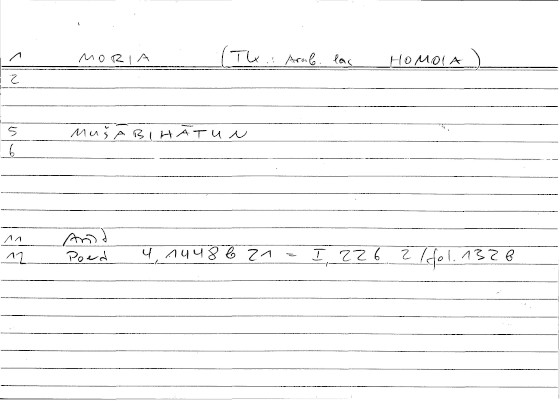 1 MORIA (Tk.: Arab. las HOMOIA)
2
5 MUŠĀBIHĀTUN
6
11 Arist
12 Poed 4, 1448b 21 = I, 226 2/fol. 132b